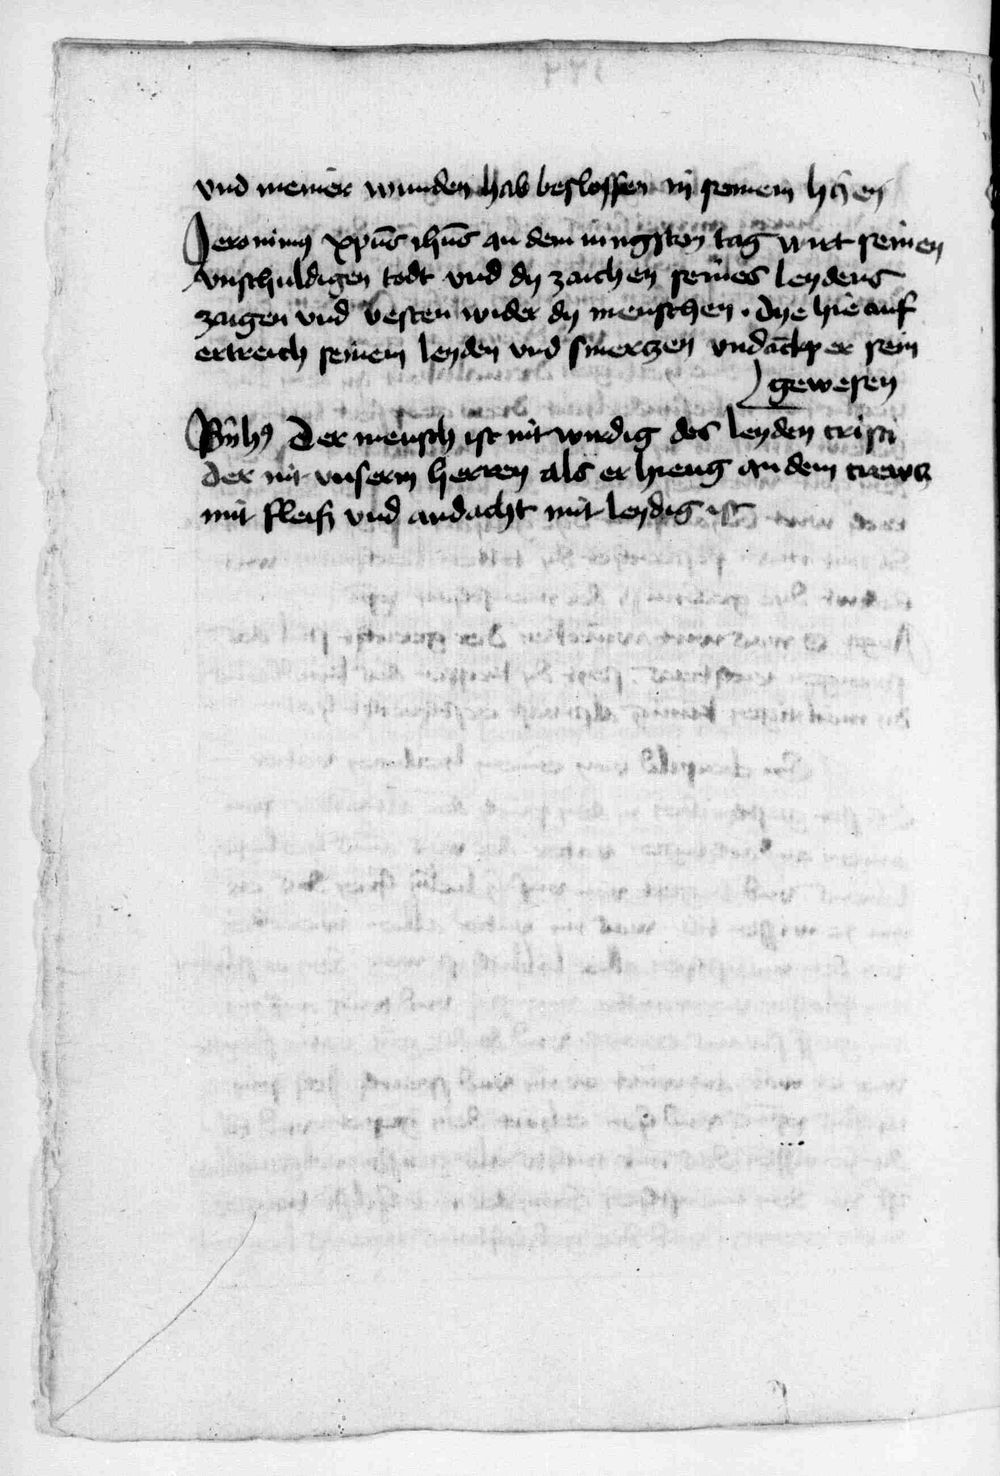 vnd meiner wunden hab beslossen in seinem hczen
Jeronimus xpūs ihūs an dem iungsten tag wirt seinen
vnschuldigen todt vnd dy zaichen seines leydens
zaigen vnd vesten wider dy menschen . dye hie auf
ertreich seinem leyden vnd smerczen vndackper sein
gewesen
Der mensch ist nit wirdig des leyden cristi
der nit vnserm herren als er hieng an dem crewcz
mit fleisz vnd andacht mit leydig ist